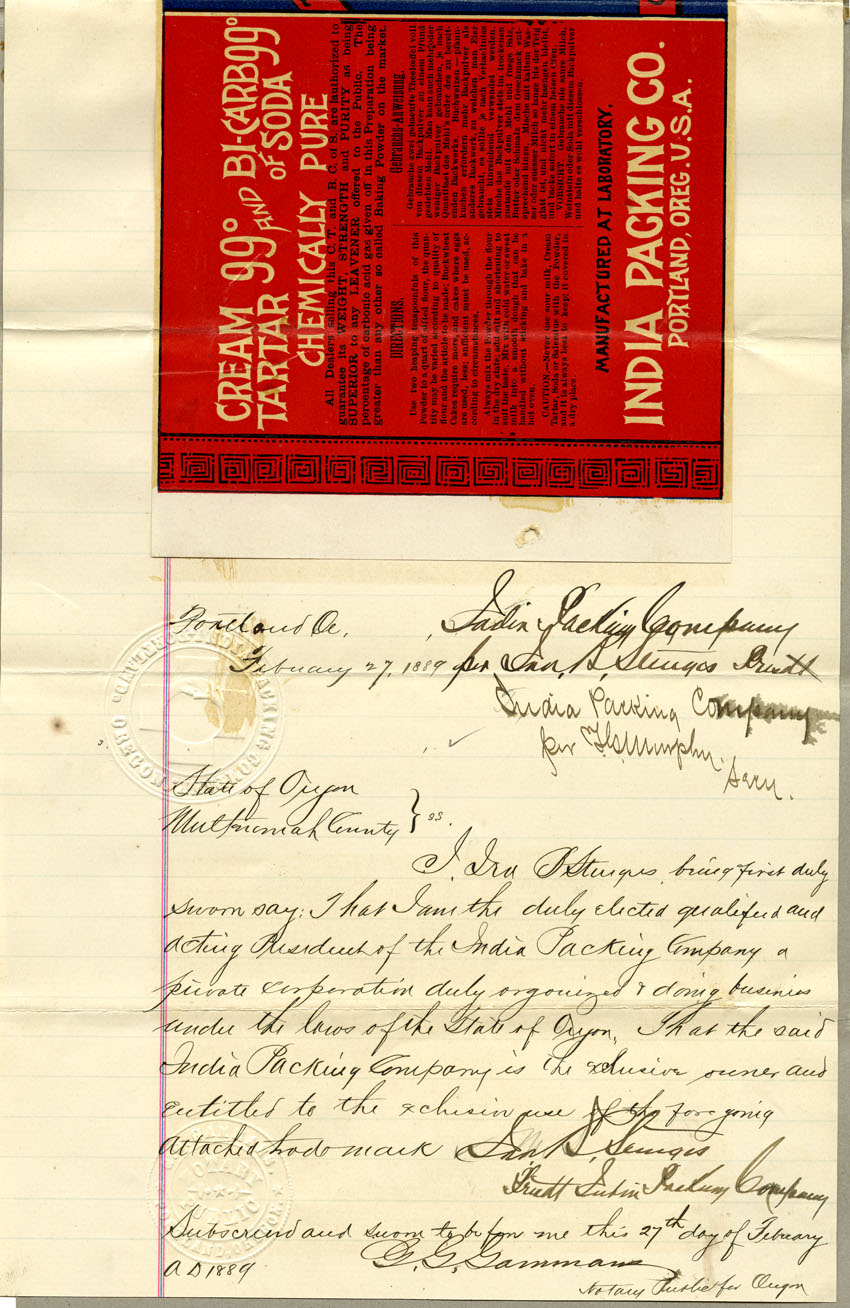 CREAM 99° AND BI-CARB 99°
TARTAR OF SODA
CHEMICALLY PURE
All Dealers selling this C. T. and B. C. of S. are authorized to
guarantee its WEIGHT, STRENGTH and PURITY as being
SUPERIOR to any LEAVENER offered to the Public. The
percentage of carbonic acid gas given off in this Preparation being
greater than any other so called Baking Powder on the market.
DIRECTIONS.
Use two heaping teaspoonfuls of this
Powder to a quart of sifted flour, the quan-
tity may be varied according to quality of
flour and the article to be made; Buckwheat
Cakes require more, and cakes where eggs
are used, less; sufficient must be used, ac-
cording to circumstances.
Always mix the Powder through the flour
in the dry state; add salt and shortening to
suit the taste. Mix with cold water or sweet
milk into a smooth dough that can be
handled without sticking and bake in a
hot oven.
CAUTION.—Never use sour milk, Cream
Tartar, Soda or Saleratus with the Powder,
and it is always best to keep it covered in
a dry place.
Gebrauchs-Anweisung.
Gebrauche zwei gehaeufte Theeloeffel voll
von diesem Backpulver zu einem Pfund
gesiebten Mehl. Man kann auch mehr oder
weniger Backpulver gebrauchen, je nach
MANUFACTURED AT LABORATORY.
INDIA PACKING CO.
PORTLAND, OREG. U.S.A.
Portland Or, India Packing Company
February 27, 1889 per Ira B, Sturges Presdt
India Packing Company
per F. S. Murphy
Secy.
State of Oregon
Multnomah County } ss.
I, Ira B Sturges, being first duly
sworn say: That I am the duly elected qualified and
acting President of the India Packing Company a
private corporation duly organized & doing business
under the laws of the State of Oregon, That the said
India Packing Company is the exclusive owner and
entitled to the exclusive use of the foregoing
attached trade mark Ira B, Sturges
Presdt India Packing Company
Subscribed and sworn to before me this 27th day of February
A D 1889 G. G. Gammans
Notary Public for Oregon